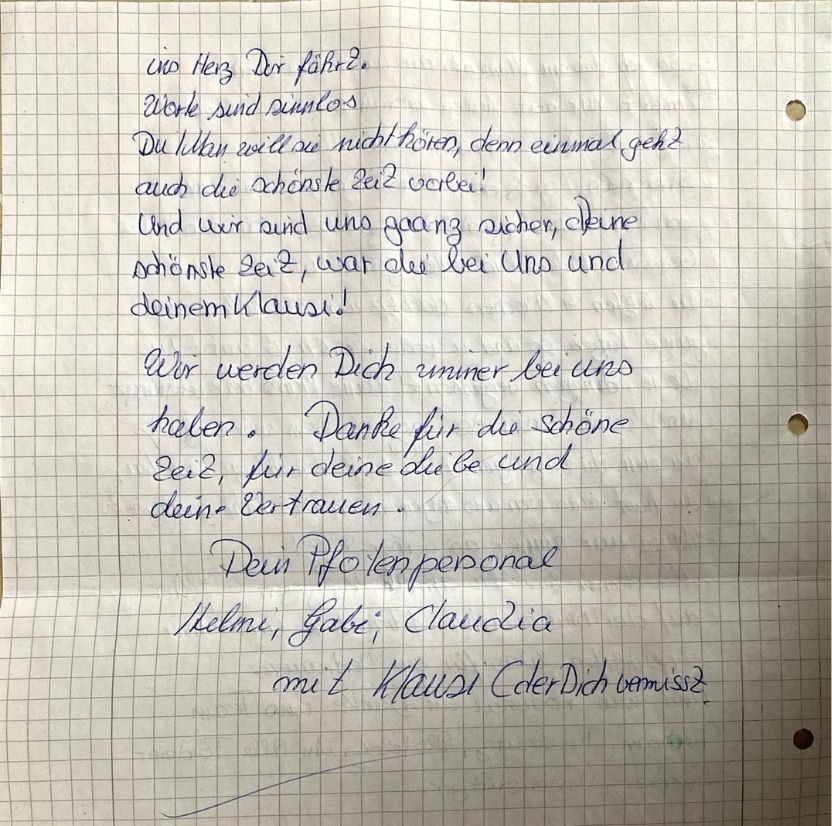 ins Herz Dir fährt.
Worte sind sinnlos
Du / Man will sie nicht hören, denn einmal geht
auch die schönste Zeit vorbei!
Und wir sind uns gaanz sicher, deine
schönste Zeit, war die bei Uns und
deinem Klausi!
Wir werden Dich immer bei uns
haben. Danke für die schöne
Zeit, für deine Liebe und
deine Vertrauen.
Dein Pfotenpersonal
Helmi, Gabi, Claudia
mit Klausi (der Dich vermisst